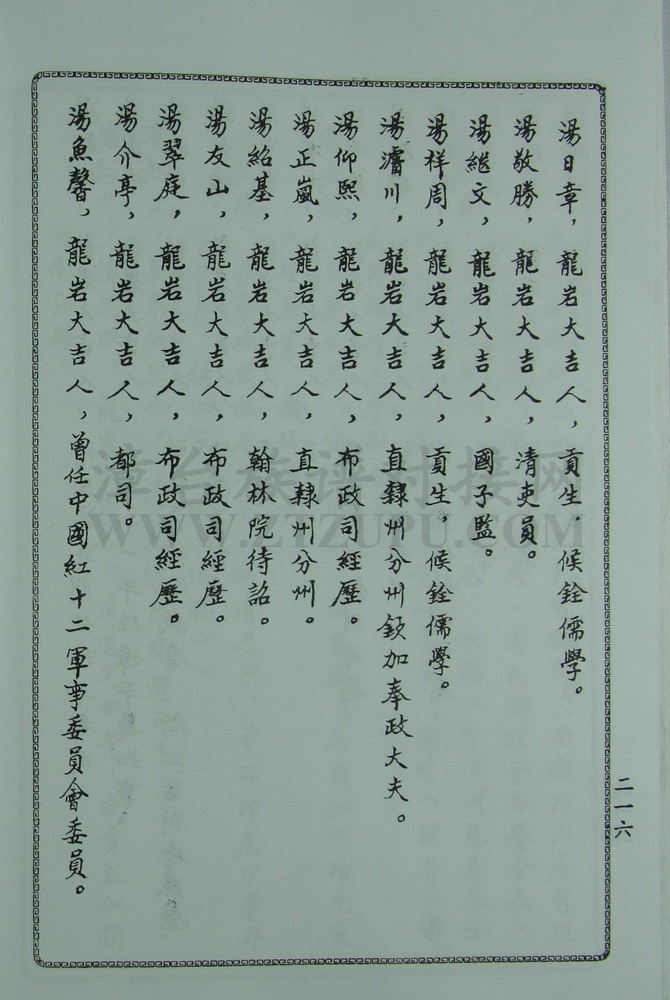 湯日章，龍岩大吉人，貢生，候銓儒學。
湯敬勝，龍岩大吉人，清吏員。
湯継文，龍岩大吉人，國子監。
湯祥周，龍岩大吉人，貢生，候銓儒學。
湯濬川，龍岩大吉人，直隸州分州欽加奉政大夫。
湯仰熙，龍岩大吉人，布政司經歷。
湯正嵐，龍岩大吉人，直隸州分州。
湯紹基，龍岩大吉人，翰林院待詔。
湯友山，龍岩大吉人，布政司經歷。
湯翠庭，龍岩大吉人，布政司經歷。
湯介亭，龍岩大吉人，都司。
湯魚馨，龍岩大吉人，曾任中國紅十二軍事委員會委員。
二一六
漳台族谱对接网
WWW.ZTZUPU.COM